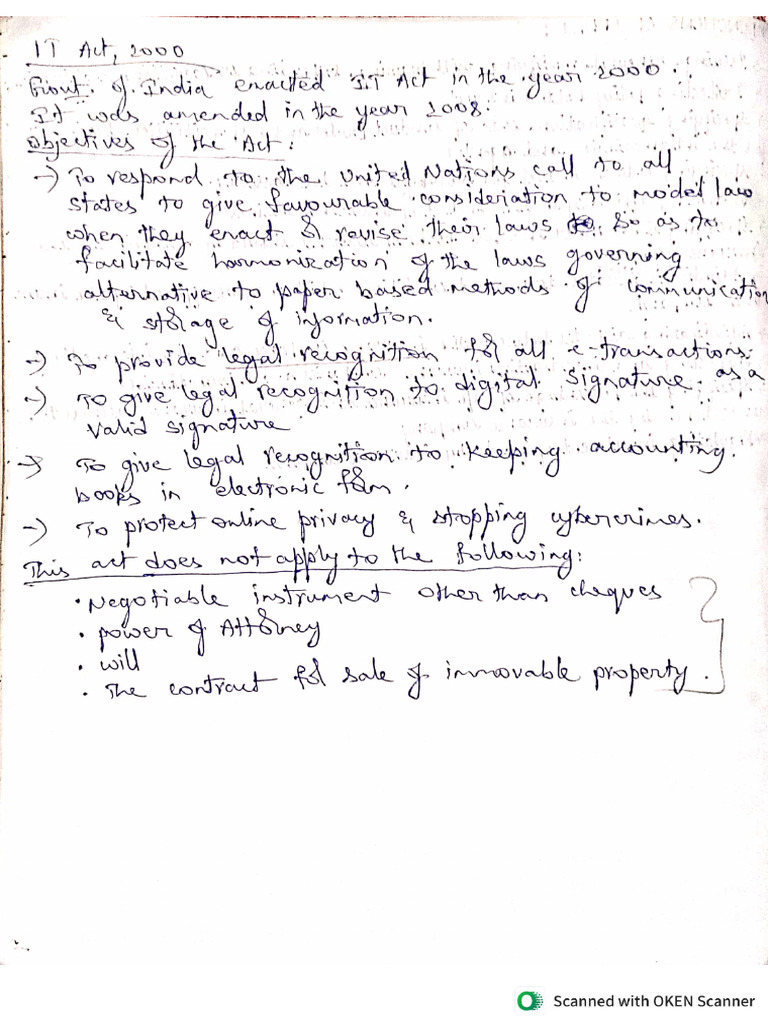 IT Act, 2000
Gout. of India enacted I.T Act in the year 2000.
It was amended in the year 2008.
Objectives of the Act:
→ To respond to the United Nations call to all
states to give favourable consideration to model law
when they enact & revise their laws so as to
facilitate harmonization of the laws governing
alternative to paper based methods of communication
& storage of information.
→ To provide legal recognition for all e-transactions.
→ To give legal recognition to digital signature as a
valid signature
→ To give legal recognition to keeping accounting
books in electronic form.
→ To protect online privacy & stopping cybercrimes.
This act does not apply to the following:
• Negotiable instrument other than cheques
• power of Attorney
• will
• The contract for sale of immovable property.
Scanned with OKEN Scanner